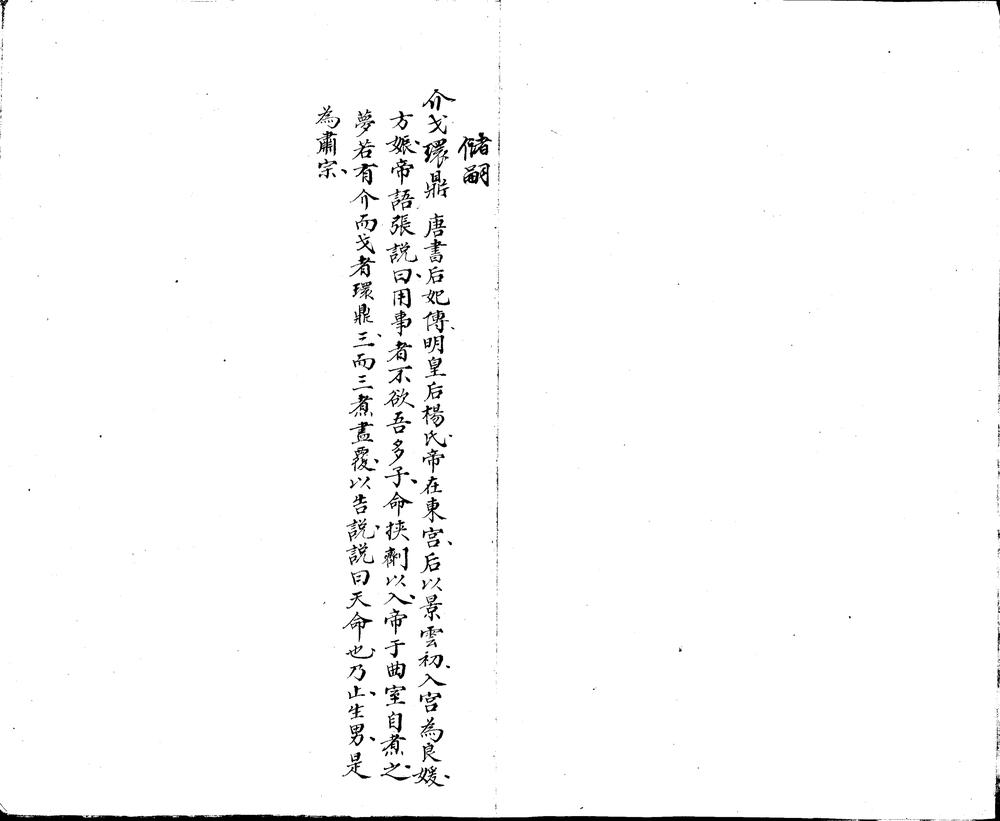 儲嗣
介戈環鼎 唐書后妃傳、明皇后楊氏、帝在東宮、后以景雲初、入宮為良媛、
方娠、帝語張説曰、用事者不欲吾多子、命挟劑以入、帝于曲室自煮之、
夢若有介而戈者環鼎三、而三煮盡覆、以告説、説曰天命也、乃止、生男、是
為肅宗、